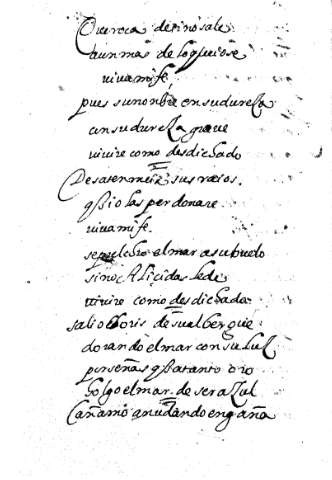 Que roca de fino sale
aun mas de lo que iose
viva mi fe,
pues su nonbre en su dureza
en su dureza graue
vivire como desdichado
Desaten meiz sus raios.
q̃ si o las perdonare
viua mi fe.
sepulchro el mar a su buelo
si no Alcidas le de
vivire como desdichada
salio Cloris de su albergue
dorando el mar con su luz
por señas q̃ a tanto oro
holgo el mar de ser azul
Cañamo anudando engaña